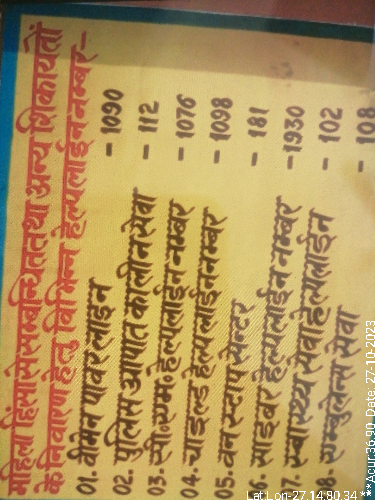 महिला हिंसा से सम्बन्धित तथा अन्य शिकायतों
के निवारण हेतु विभिन्न हेल्पलाईन नम्बर-
01. वीमेन पावर लाइन - 1090
02. पुलिस आपात कालीन सेवा - 112
03. सी.एम. हेल्पलाईन नम्बर - 1076
04. चाइल्ड हेल्पलाईन नम्बर - 1098
05. वन स्टाप सेन्टर - 181
06. साइबर हेल्पलाईन नम्बर - 1930
07. स्वास्थ्य सेवा हेल्पलाईन - 102
08. एम्बुलेन्स सेवा - 108
Lat Lon-27 14,80 34
***Acur:36.90, Date: 27-10-2023